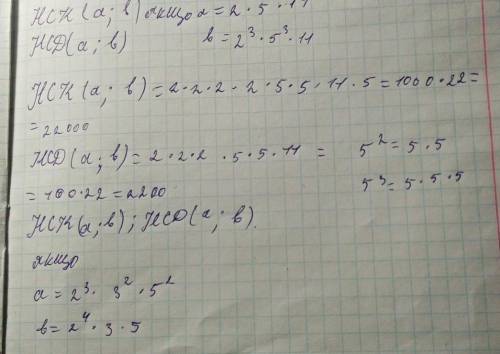 НСК (а; в) якщо а = 2 · 5 · 11
НСД (а; в) в = 2³ · 5³ · 11
НСК (а; в) = 2 · 2 · 2 · 2 · 5 · 5 · 11 · 5 = 1000 · 22 =
= 22000
НСД (а; в) = 2 · 2 · 2 · 5 · 5 · 11 = 5² = 5 · 5
= 100 · 22 = 2200 5³ = 5 · 5 · 5
НСК (а; в); НСД (а; в).
якщо
а = 2³ · 3² · 5²
в = 2⁴ · 3 · 5